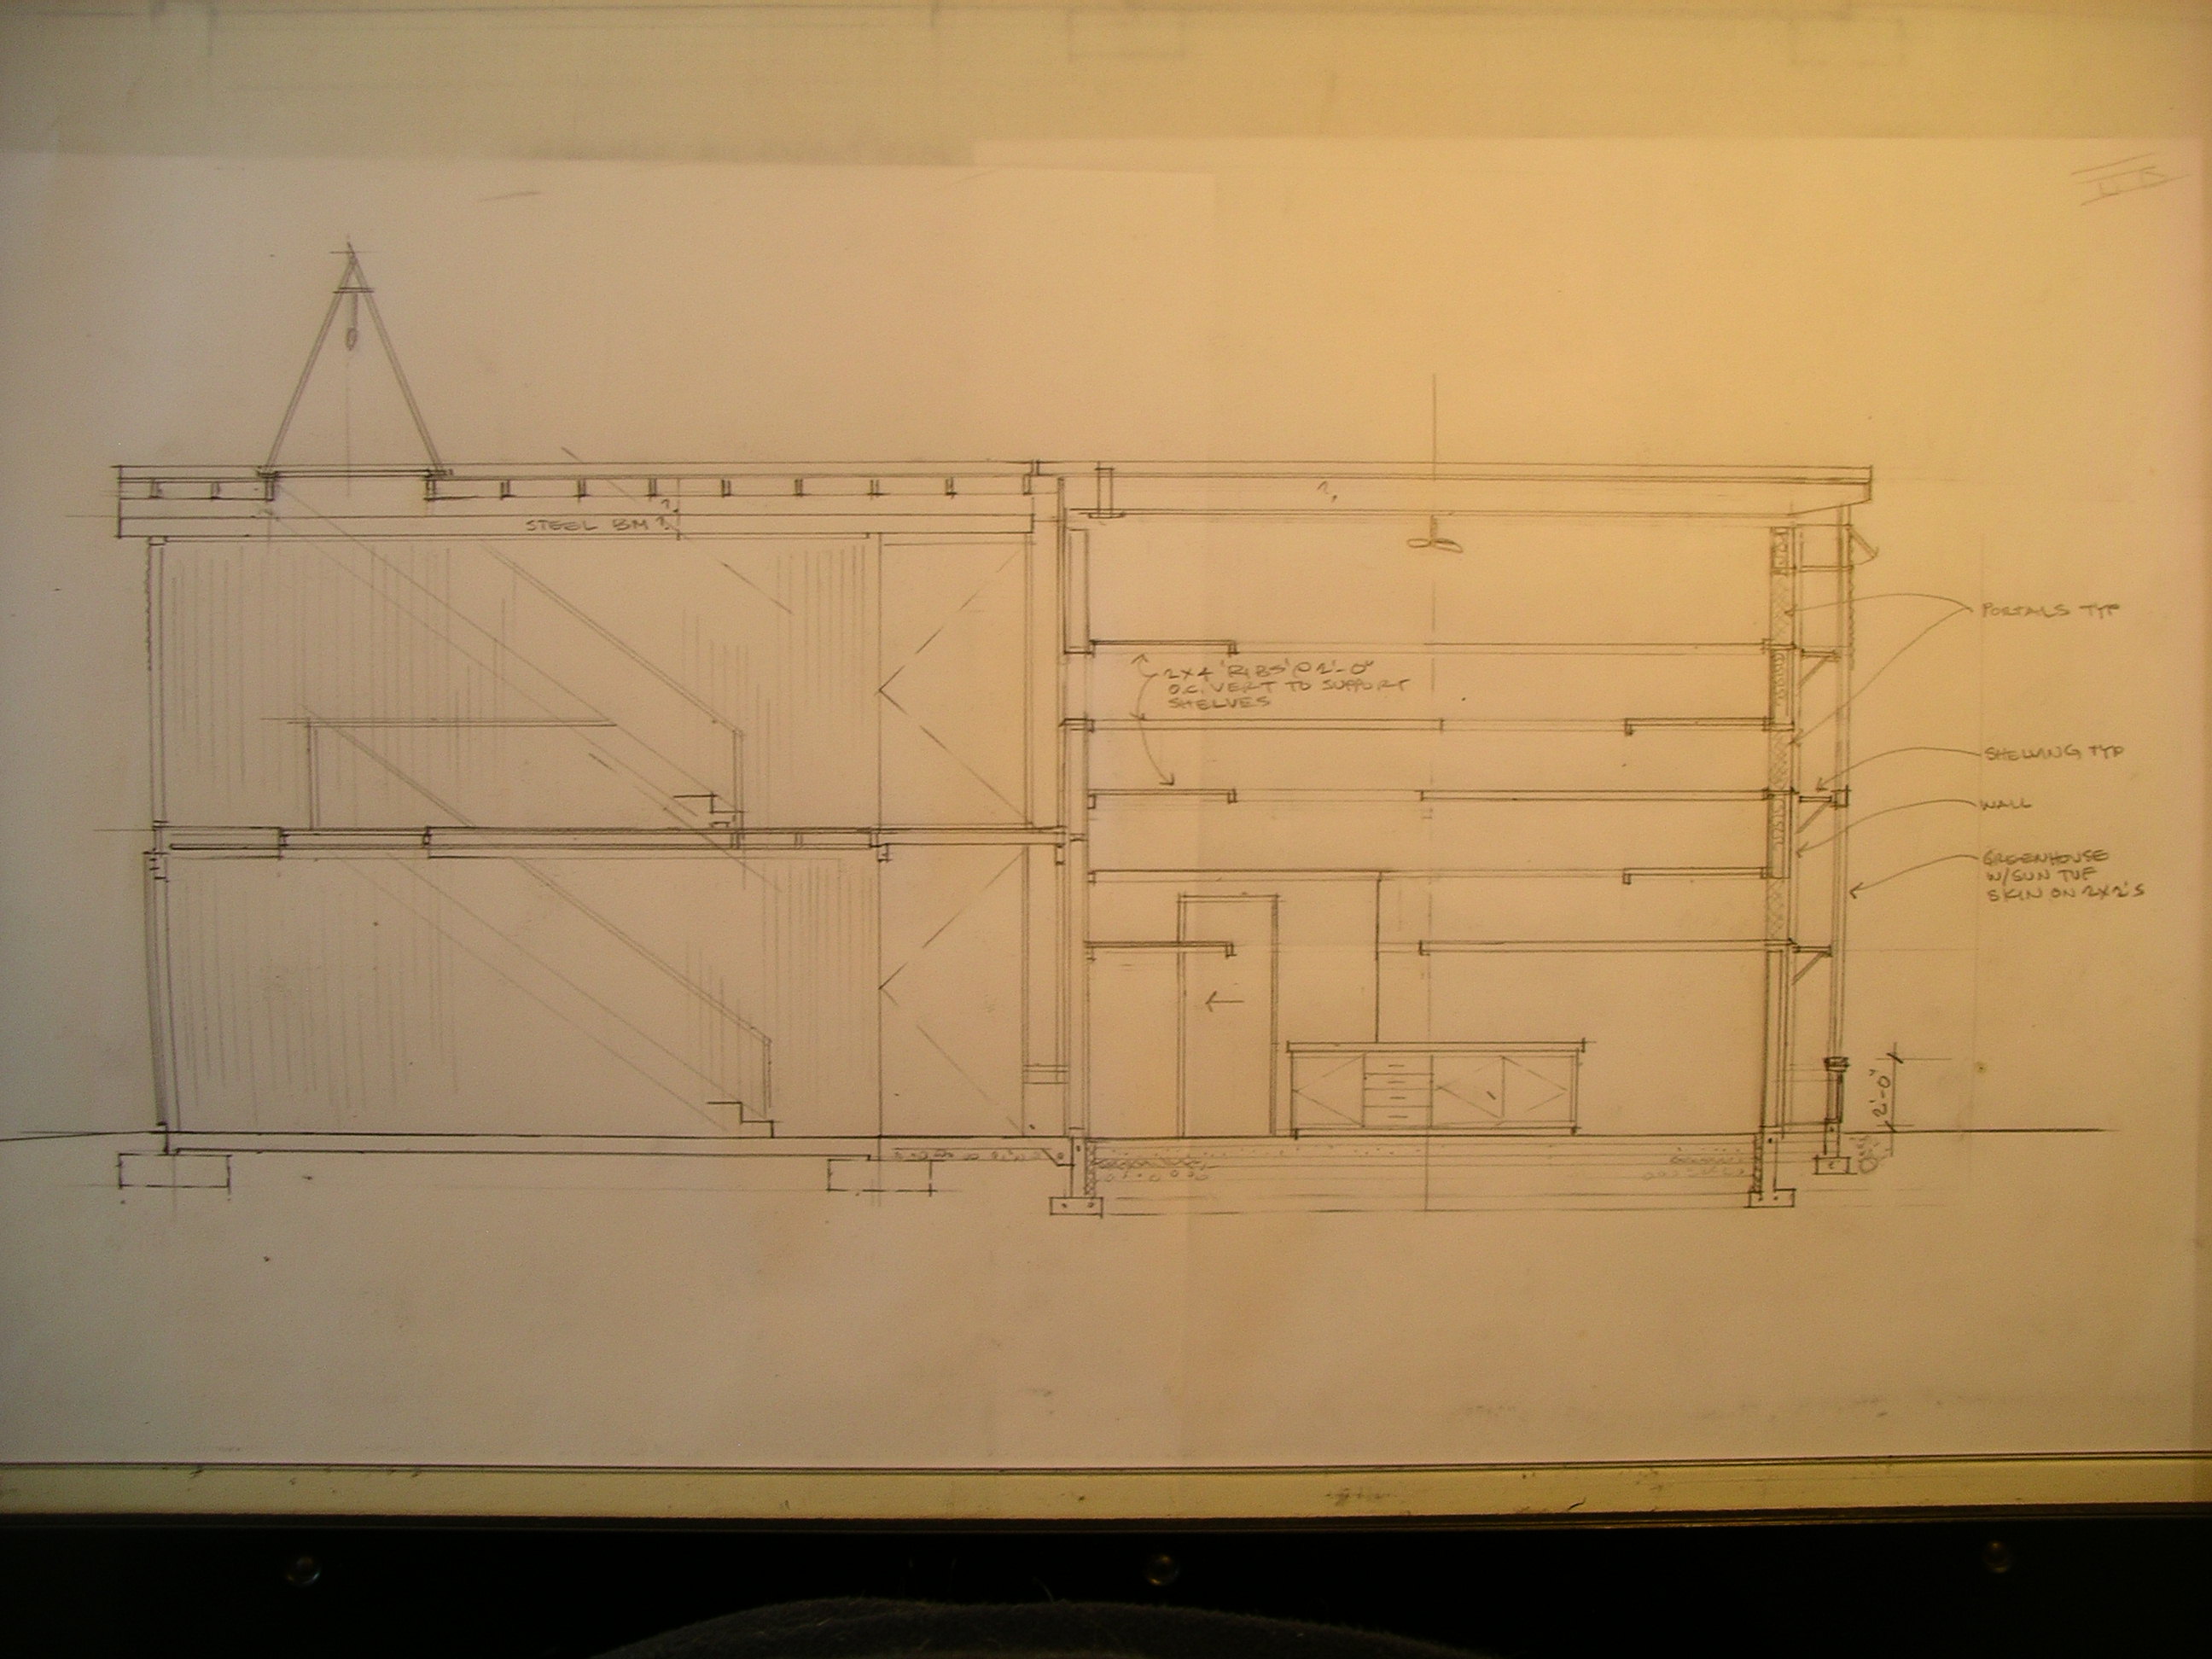 STEEL BM?
?
2X4 'RIBS' @ 2'-0"
O.C. VERT TO SUPPORT
SHELVES
PORTALS TYP
SHELVING TYP
WALL
GREENHOUSE
W/SUN TUF
SKIN ON 2X2'S
2'-0"